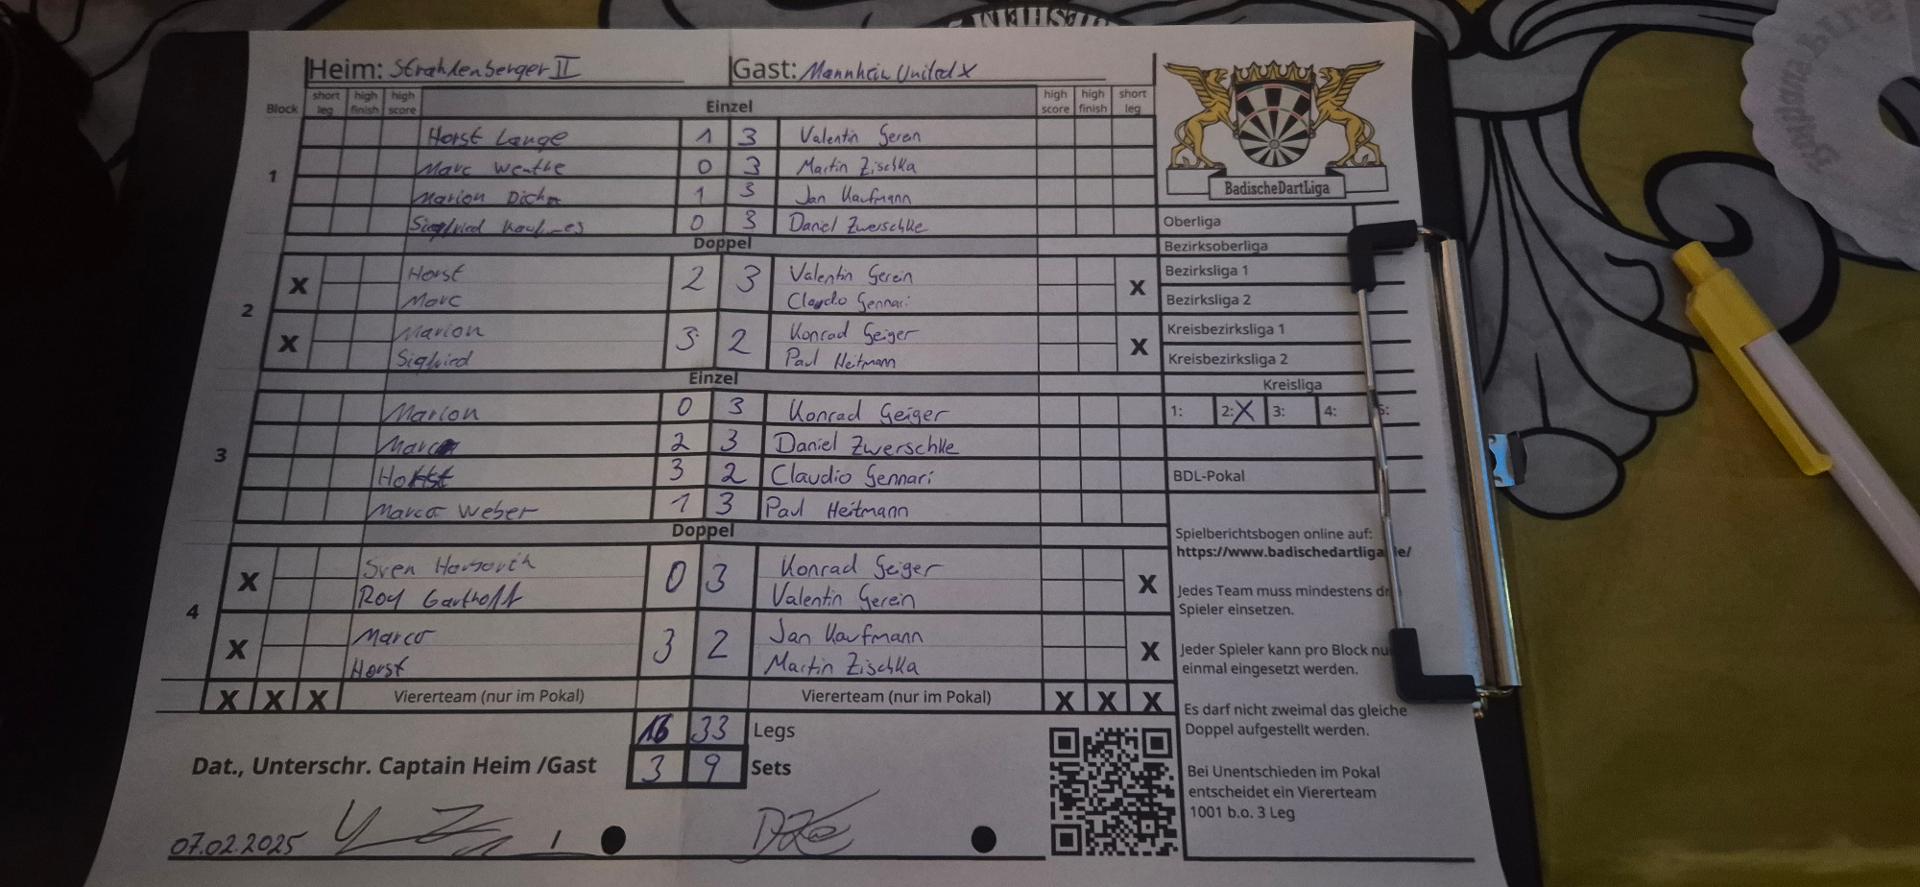 Heim: Strahlenberger II Gast: Mannheim United X
Block short leg high finish high score Einzel high score high finish short leg
1
Horst Lange 1 3 Valentin Geren
Marc Wenthe 0 3 Martin Zischka
Marion Dichn 1 3 Jan Kaufmann
Siegfried 0 3 Daniel Zwerschke
Doppel
2
X Horst 2 3 Valentin Gerein X
Marc Claudio Gennari
X Marion 3 2 Konrad Geiger X
Sigfried Paul Heitmann
Einzel
3
Marion 0 3 Konrad Geiger
Marc 2 3 Daniel Zwerschke
Horst 3 2 Claudio Gennari
Marco Weber 1 3 Paul Heitmann
Doppel
4
X Sven 0 3 Konrad Geiger X
Roy Garthoff Valentin Gerein
X Marco 3 2 Jan Kaufmann X
Horst Martin Zischka
X X X Viererteam (nur im Pokal) Viererteam (nur im Pokal) X X X
16 33 Legs
Dat., Unterschr. Captain Heim /Gast 3 9 Sets
07.02.2025
BadischeDartLiga
Oberliga
Bezirksoberliga
Bezirksliga 1
Bezirksliga 2
Kreisbezirksliga 1
Kreisbezirksliga 2
Kreisliga
1: 2: X 3: 4: 5:
BDL-Pokal
Spielberichtsbogen online auf:
https://www.badischedartliga
Jedes Team muss mindestens
Spieler einsetzen.
Jeder Spieler kann pro Block
einmal eingesetzt werden.
Es darf nicht zweimal das gleiche
Doppel aufgestellt werden.
Bei Unentschieden im Pokal
entscheidet ein Viererteam
1001 b.o. 3 Leg